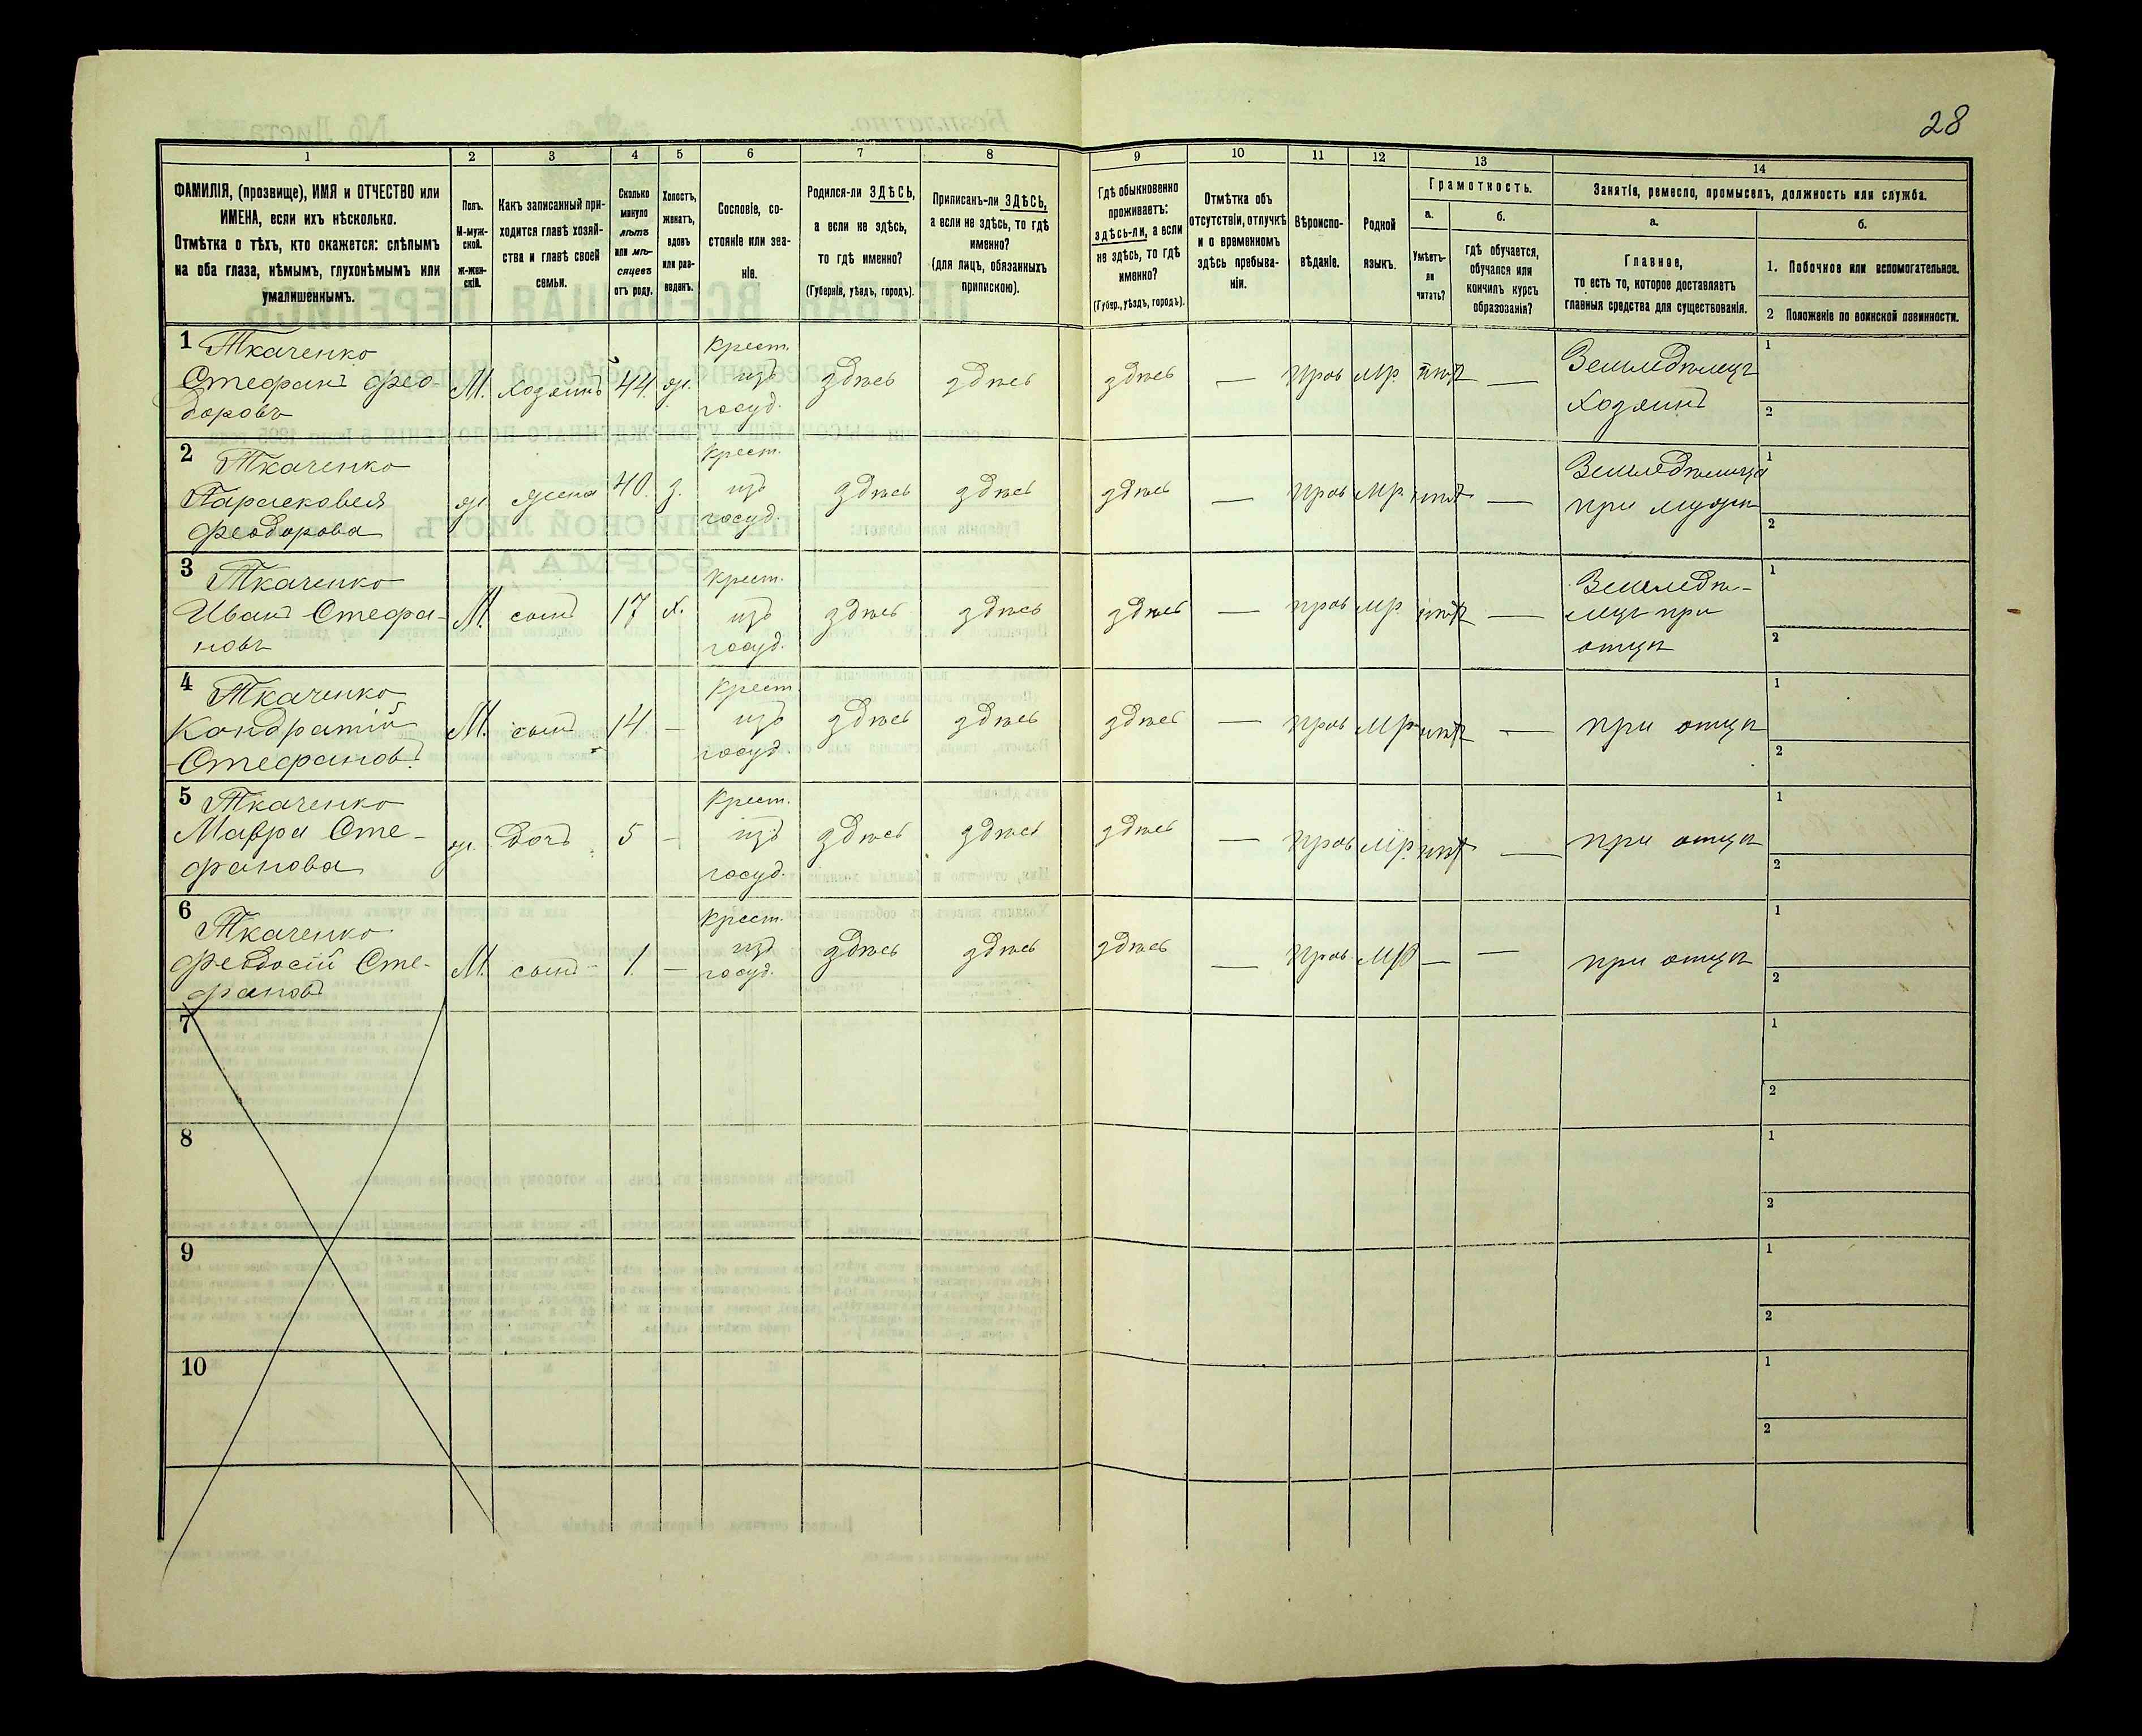 28
1
2
3
4
5
6
7
8
9
10
11
12
13
14
ФАМИЛІЯ, (прозвище), ИМЯ и ОТЧЕСТВО или
ИМЕНА, если ихъ нѣсколько.
Отмѣтка о тѣхъ, кто окажется: слѣпымъ
на оба глаза, нѣмымъ, глухонѣмымъ или
умалишеннымъ.
Полъ.
М-муж-
ской.
ж-жен-
скій.
Какъ записанный при-
ходится главѣ хозяй-
ства и главѣ своей
семьи.
Сколько
минуло
лѣтъ
или мѣ-
сяцевъ
отъ роду.
Холостъ,
женатъ,
вдовъ
или раз-
веденъ.
Сословіе, со-
стояніе или зва-
ніе.
Родился-ли ЗДѢСЬ,
а если не здѣсь,
то гдѣ именно?
(Губернія, уѣздъ, городъ).
Приписанъ-ли ЗДѢСЬ,
а если не здѣсь, то гдѣ
именно?
(для лицъ, обязанныхъ
припискою).
Гдѣ обыкновенно
проживаетъ:
здѣсь-ли, а если
не здѣсь, то гдѣ
именно?
(Губер., уѣздъ, городъ).
Отмѣтка объ
отсутствіи, отлучкѣ
и о временномъ
здѣсь пребыва-
ніи.
Вѣроиспо-
вѣданіе.
Родной
языкъ.
Грамотность.
а.
б.
Умѣетъ-
ли
читать?
гдѣ обучается,
обучался или
кончилъ курсъ
образованія?
Занятіе, ремесло, промыселъ, должность или служба.
а.
б.
Главное,
то есть то, которое доставляетъ
главныя средства для существованія.
1. Побочное или вспомогательное.
2 Положеніе по воинской повинности.
1 Ткаченко
Стефанъ Фео-
доровъ
М. Хозяинъ 44. ж.
Крест.
изъ
госуд.
здѣсь здѣсь здѣсь — Прав мр. нѣт —
Земледѣлецъ
Хозяинъ
1
2
2 Ткаченко
Парасковея
Феодорова
ж. жена 40. з.
Крест.
изъ
госуд.
здѣсь здѣсь здѣсь — Прав мр. нѣт —
Земледѣлица
при мужѣ
1
2
3 Ткаченко
Иванъ Стефа-
новъ
М. сынъ 17 х.
Крест.
изъ
госуд.
здѣсь здѣсь здѣсь — прав мр. нѣт —
Земледѣ-
лецъ при
отцѣ
1
2
4 Ткаченко
Кондратій
Стефановъ
М. сынъ 14 —
Крест
изъ
госуд.
здѣсь здѣсь здѣсь — Прав мр. нѣт —
при отцѣ
1
2
5 Ткаченко
Мавра Сте-
фанова
ж. дочь 5 —
Крест.
изъ
госуд.
здѣсь здѣсь здѣсь — Прав мр. нѣт —
при отцѣ
1
2
6 Ткаченко
Феодосій Сте-
фановъ
М. сынъ 1. —
Крест.
изъ
госуд.
здѣсь здѣсь здѣсь — Прав мр — —
при отцѣ
1
2
7
1
2
8
1
2
9
1
2
10
1
2